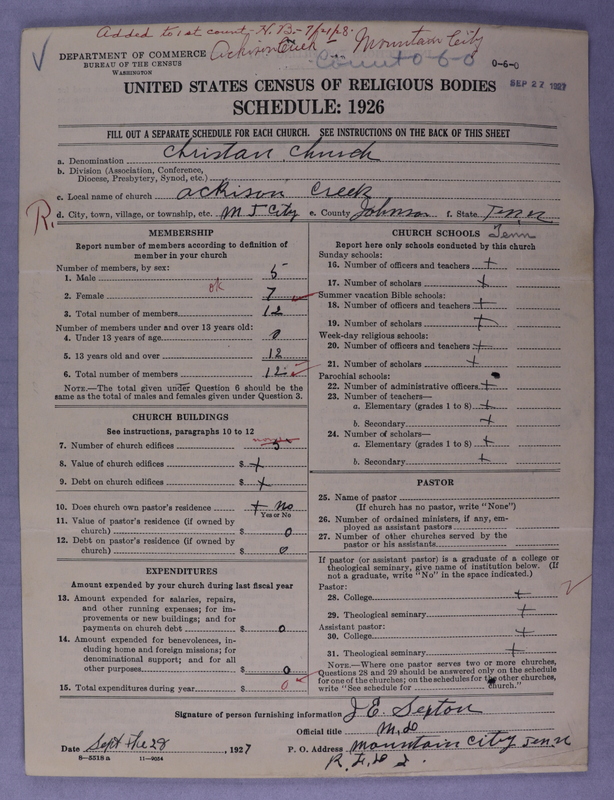 Added to 1st count - H.B. - 7/21/28.
Ackison Creek Mountain City
Count 0-6-0
DEPARTMENT OF COMMERCE
BUREAU OF THE CENSUS
WASHINGTON
0-6-0
SEP 27 1927
UNITED STATES CENSUS OF RELIGIOUS BODIES
SCHEDULE: 1926
FILL OUT A SEPARATE SCHEDULE FOR EACH CHURCH. SEE INSTRUCTIONS ON THE BACK OF THIS SHEET
a. Denomination Christian Church
b. Division (Association, Conference,
Diocese, Presbytery, Synod, etc.)
c. Local name of church ackison Creek
d. City, town, village, or township, etc. M T City e. County Johnson f. State Tenn
R.
Tenn
MEMBERSHIP
Report number of members according to definition of
member in your church
Number of members, by sex:
1. Male 5
ok
2. Female 7
3. Total number of members 12
Number of members under and over 13 years old:
4. Under 13 years of age 0
5. 13 years old and over 12
6. Total number of members 12
NOTE.—The total given under Question 6 should be the
same as the total of males and females given under Question 3.
CHURCH BUILDINGS
See instructions, paragraphs 10 to 12
7. Number of church edifices
8. Value of church edifices $ +
9. Debt on church edifices $ +
10. Does church own pastor's residence + No
Yes or No
11. Value of pastor's residence (if owned by
church) $ 0
12. Debt on pastor's residence (if owned by
church) $ 0
EXPENDITURES
Amount expended by your church during last fiscal year
13. Amount expended for salaries, repairs,
and other running expenses; for im-
provements or new buildings; and for
payments on church debt $ 0
14. Amount expended for benevolences, in-
cluding home and foreign missions; for
denominational support; and for all
other purposes $ 0
15. Total expenditures during year $ 0
CHURCH SCHOOLS
Report here only schools conducted by this church
Sunday schools:
16. Number of officers and teachers +
17. Number of scholars +
Summer vacation Bible schools:
18. Number of officers and teachers +
19. Number of scholars +
Week-day religious schools:
20. Number of officers and teachers +
21. Number of scholars +
Parochial schools:
22. Number of administrative officers +
23. Number of teachers—
a. Elementary (grades 1 to 8) +
b. Secondary +
24. Number of scholars—
a. Elementary (grades 1 to 8) +
b. Secondary +
PASTOR
25. Name of pastor
(If church has no pastor, write "None")
26. Number of ordained ministers, if any, em-
ployed as assistant pastors
27. Number of other churches served by the
pastor or his assistants
If pastor (or assistant pastor) is a graduate of a college or
theological seminary, give name of institution below. (If
not a graduate, write "No" in the space indicated.)
Pastor:
28. College +
29. Theological seminary +
Assistant pastor:
30. College +
31. Theological seminary +
NOTE.—Where one pastor serves two or more churches,
Questions 28 and 29 should be answered only on the schedule
for one of the churches; on the schedules for the other churches,
write "See schedule for church."
Signature of person furnishing information J. E. Sexton
Official title M. D
Date Sept the 28, 1927 P. O. Address Mountain City Tenn
R. F. D 2.
8-5518 a 11-9554